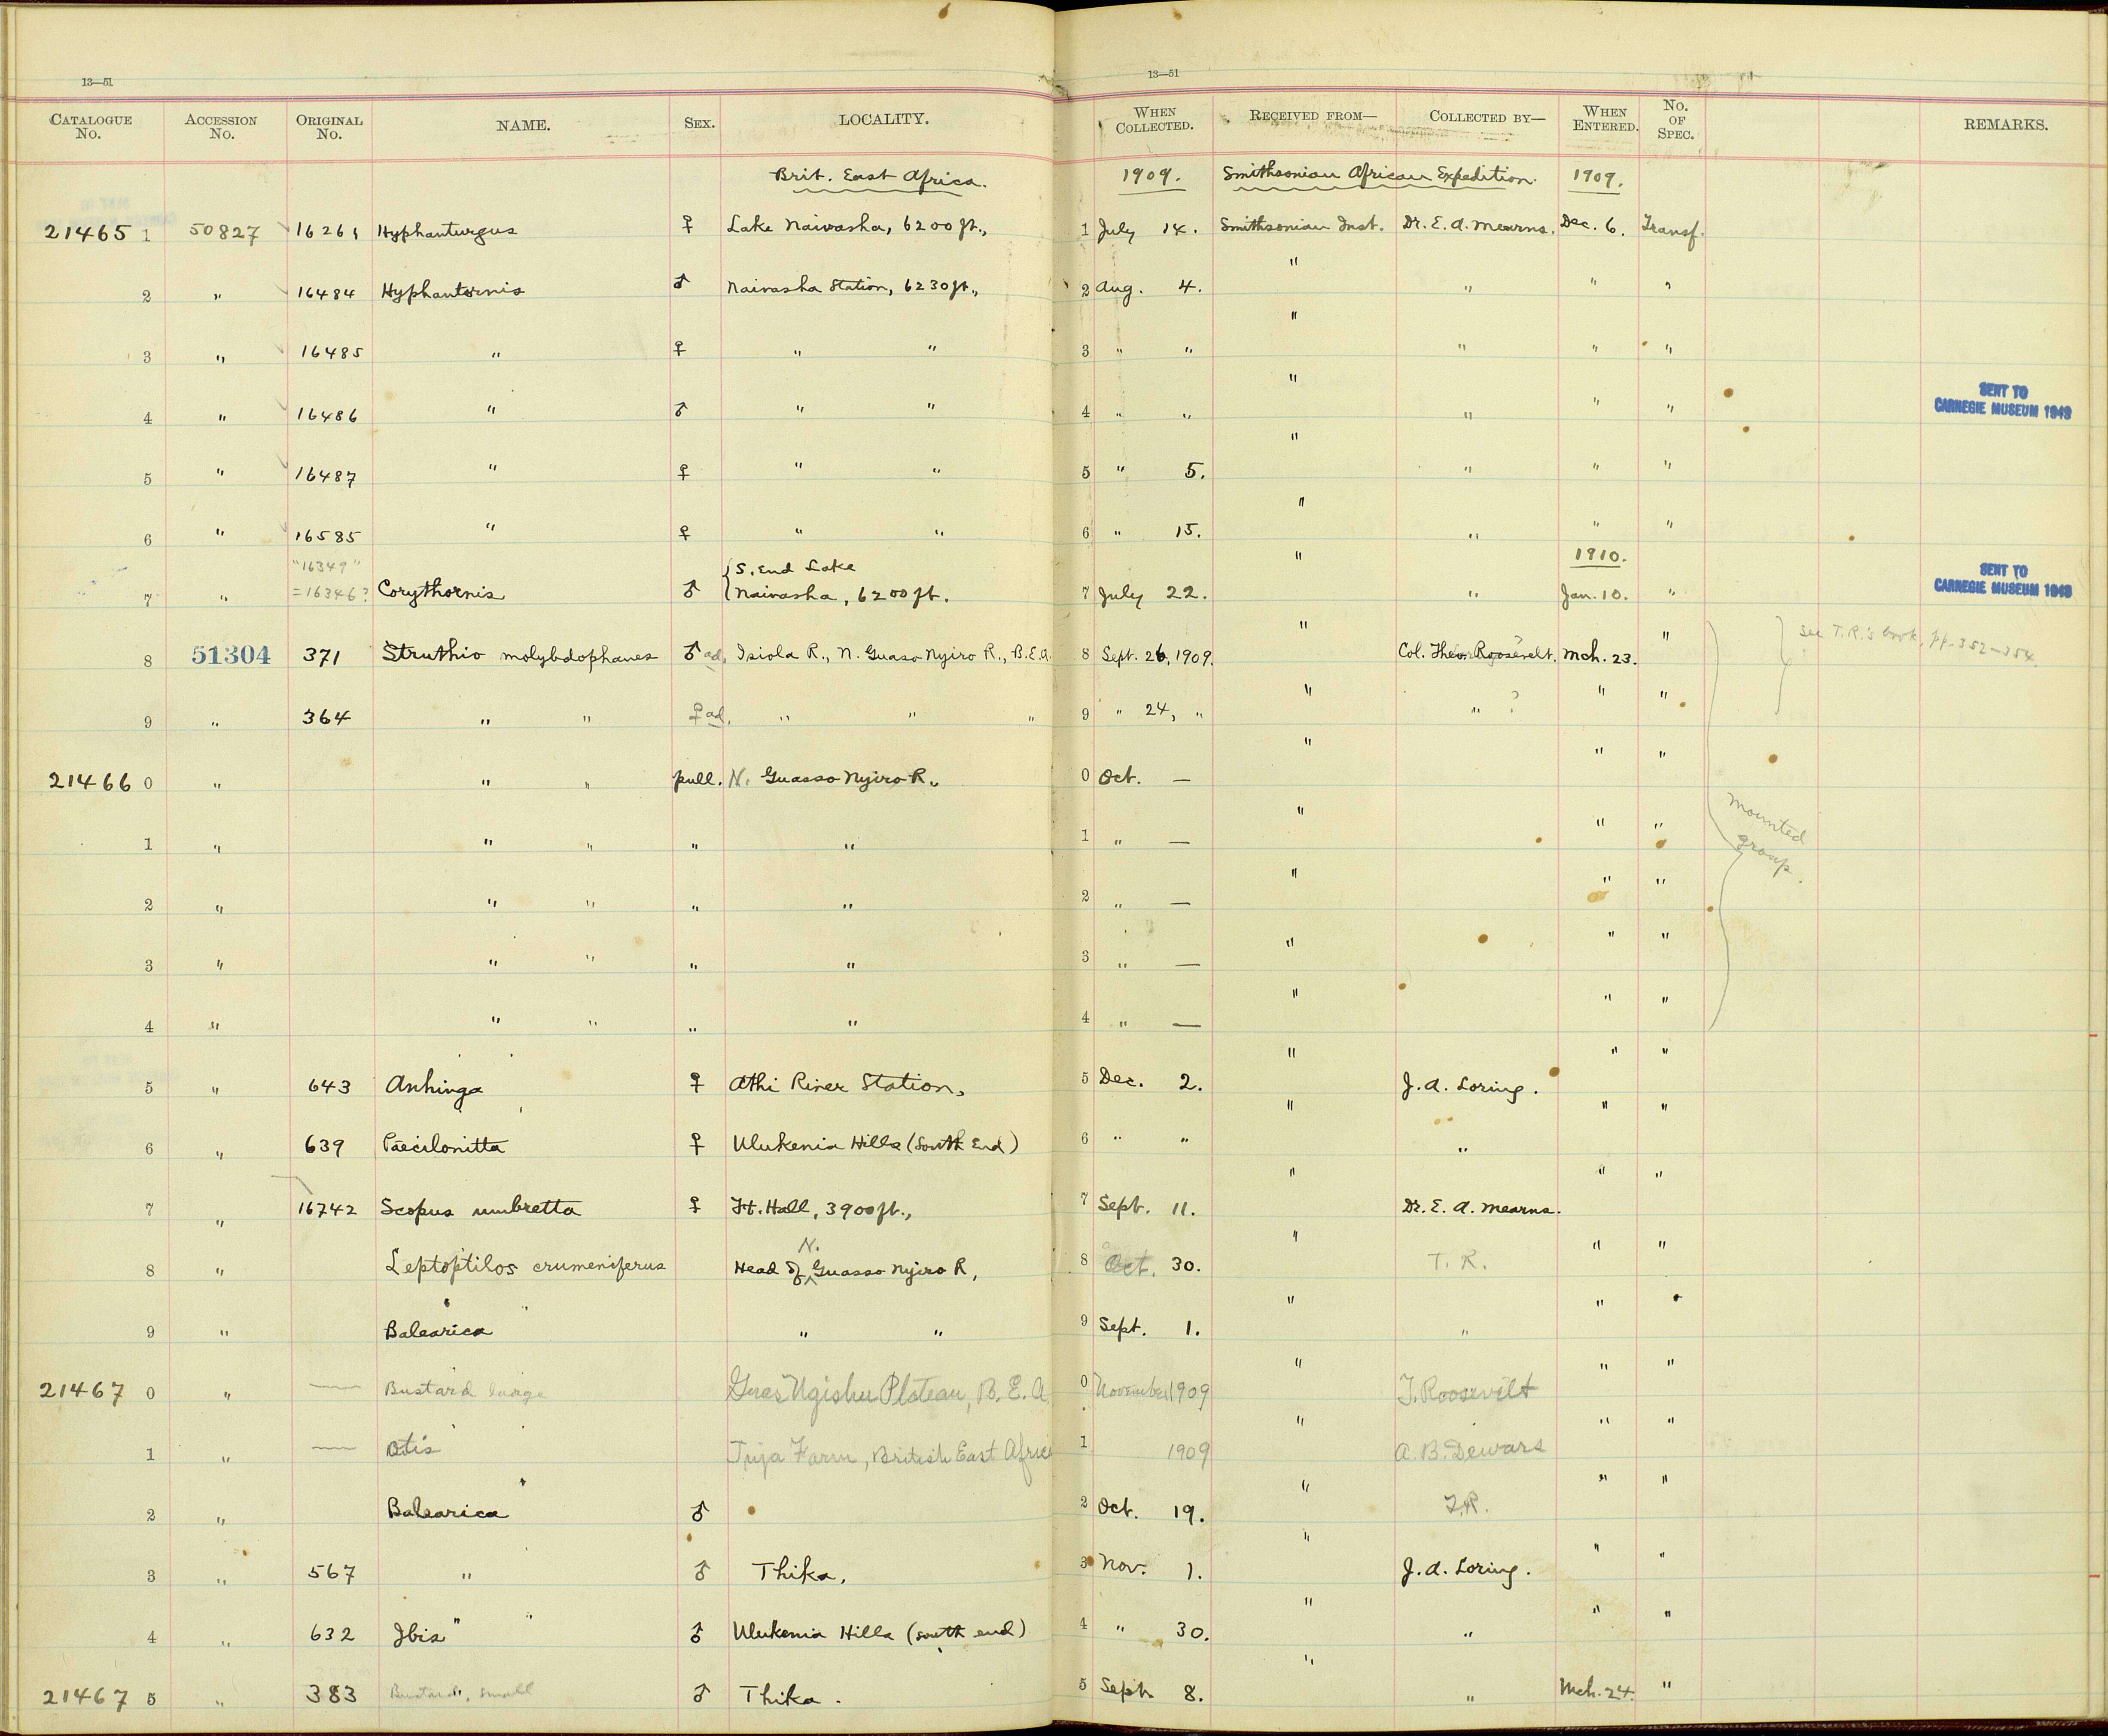 13—51
13—51
CATALOGUE No. ACCESSION No. ORIGINAL No. NAME. SEX. LOCALITY. WHEN COLLECTED. RECEIVED FROM— COLLECTED BY— WHEN ENTERED. No. OF SPEC. REMARKS.
Brit. East Africa. 1909. Smithsonian African Expedition. 1909.
21465 1 50827 16261 Hyphanturgus ♀ Lake Naivasha, 6200 ft., 1 July 14. Smithsonian Inst. Dr. E. A. Mearns. Dec. 6. Transf.
2 " 16484 Hyphantornis ♂ Naivasha Station, 6230 ft., 2 Aug. 4. " " " "
3 " 16485 " ♀ " " 3 " " " " " "
4 " 16486 " ♂ " " 4 " " " " " " SENT TO CARNEGIE MUSEUM 1943
5 " 16487 " ♀ " " 5 " 5. " " " "
6 " 16585 " ♀ " " 6 " 15. " " " "
"16349" {S. End Lake 1910.
7 " =16346? Corythornis ♂ Naivasha, 6200 ft. 7 July 22. " " Jan. 10. " SENT TO CARNEGIE MUSEUM 1943
8 51304 371 Struthio molybdophanes ♂ ad. Isiola R., N. Guaso Nyiro R., B.E.A. 8 Sept. 26, 1909. " Col. Theo. Roosevelt. ? Mch. 23. " See T.R.'s book, pp. 352–354.
9 " 364 " " ♀ ad. " " " 9 " 24, " " " ? " "
21466 0 " " " pull. N. Guasso Nyiro R., 0 Oct. — " " "
1 " " " " " 1 " — " " " mounted group.
2 " " " " " 2 " — " " "
3 " " " " " 3 " — " " "
4 " " " " " 4 " — " " "
5 " 643 Anhinga ♀ Athi River Station, 5 Dec. 2. " J. A. Loring. " "
6 " 639 Paecilonitta ♀ Ulukenia Hills (South End) 6 " " " " " "
7 " 16742 Scopus umbretta ♀ Ft. Hall, 3900 ft., 7 Sept. 11. " Dr. E. A. Mearns. " "
8 " Leptoptilos crumeniferus Head of N. Guasso Nyiro R, 8 Oct. 30. " T. R. " "
9 " Balearica " " 9 Sept. 1. " " " "
21467 0 " — Bustard large Guas Ngishu Plateau, B. E. A. 0 November 1909 " T. Roosevelt " "
1 " — Otis Juja Farm, British East Africa 1 1909 " A. B. Dewars " "
2 " Balearica ♂ 2 Oct. 19. " T.R. " "
3 " 567 " ♂ Thika. 3 Nov. 1. " J. A. Loring. " "
4 " 632 Ibis ♂ Ulukenia Hills (south end) 4 " 30. " " " "
21467 5 " 383 Bustard, small ♂ Thika. 5 Sept. 8. " " Mch. 24. "